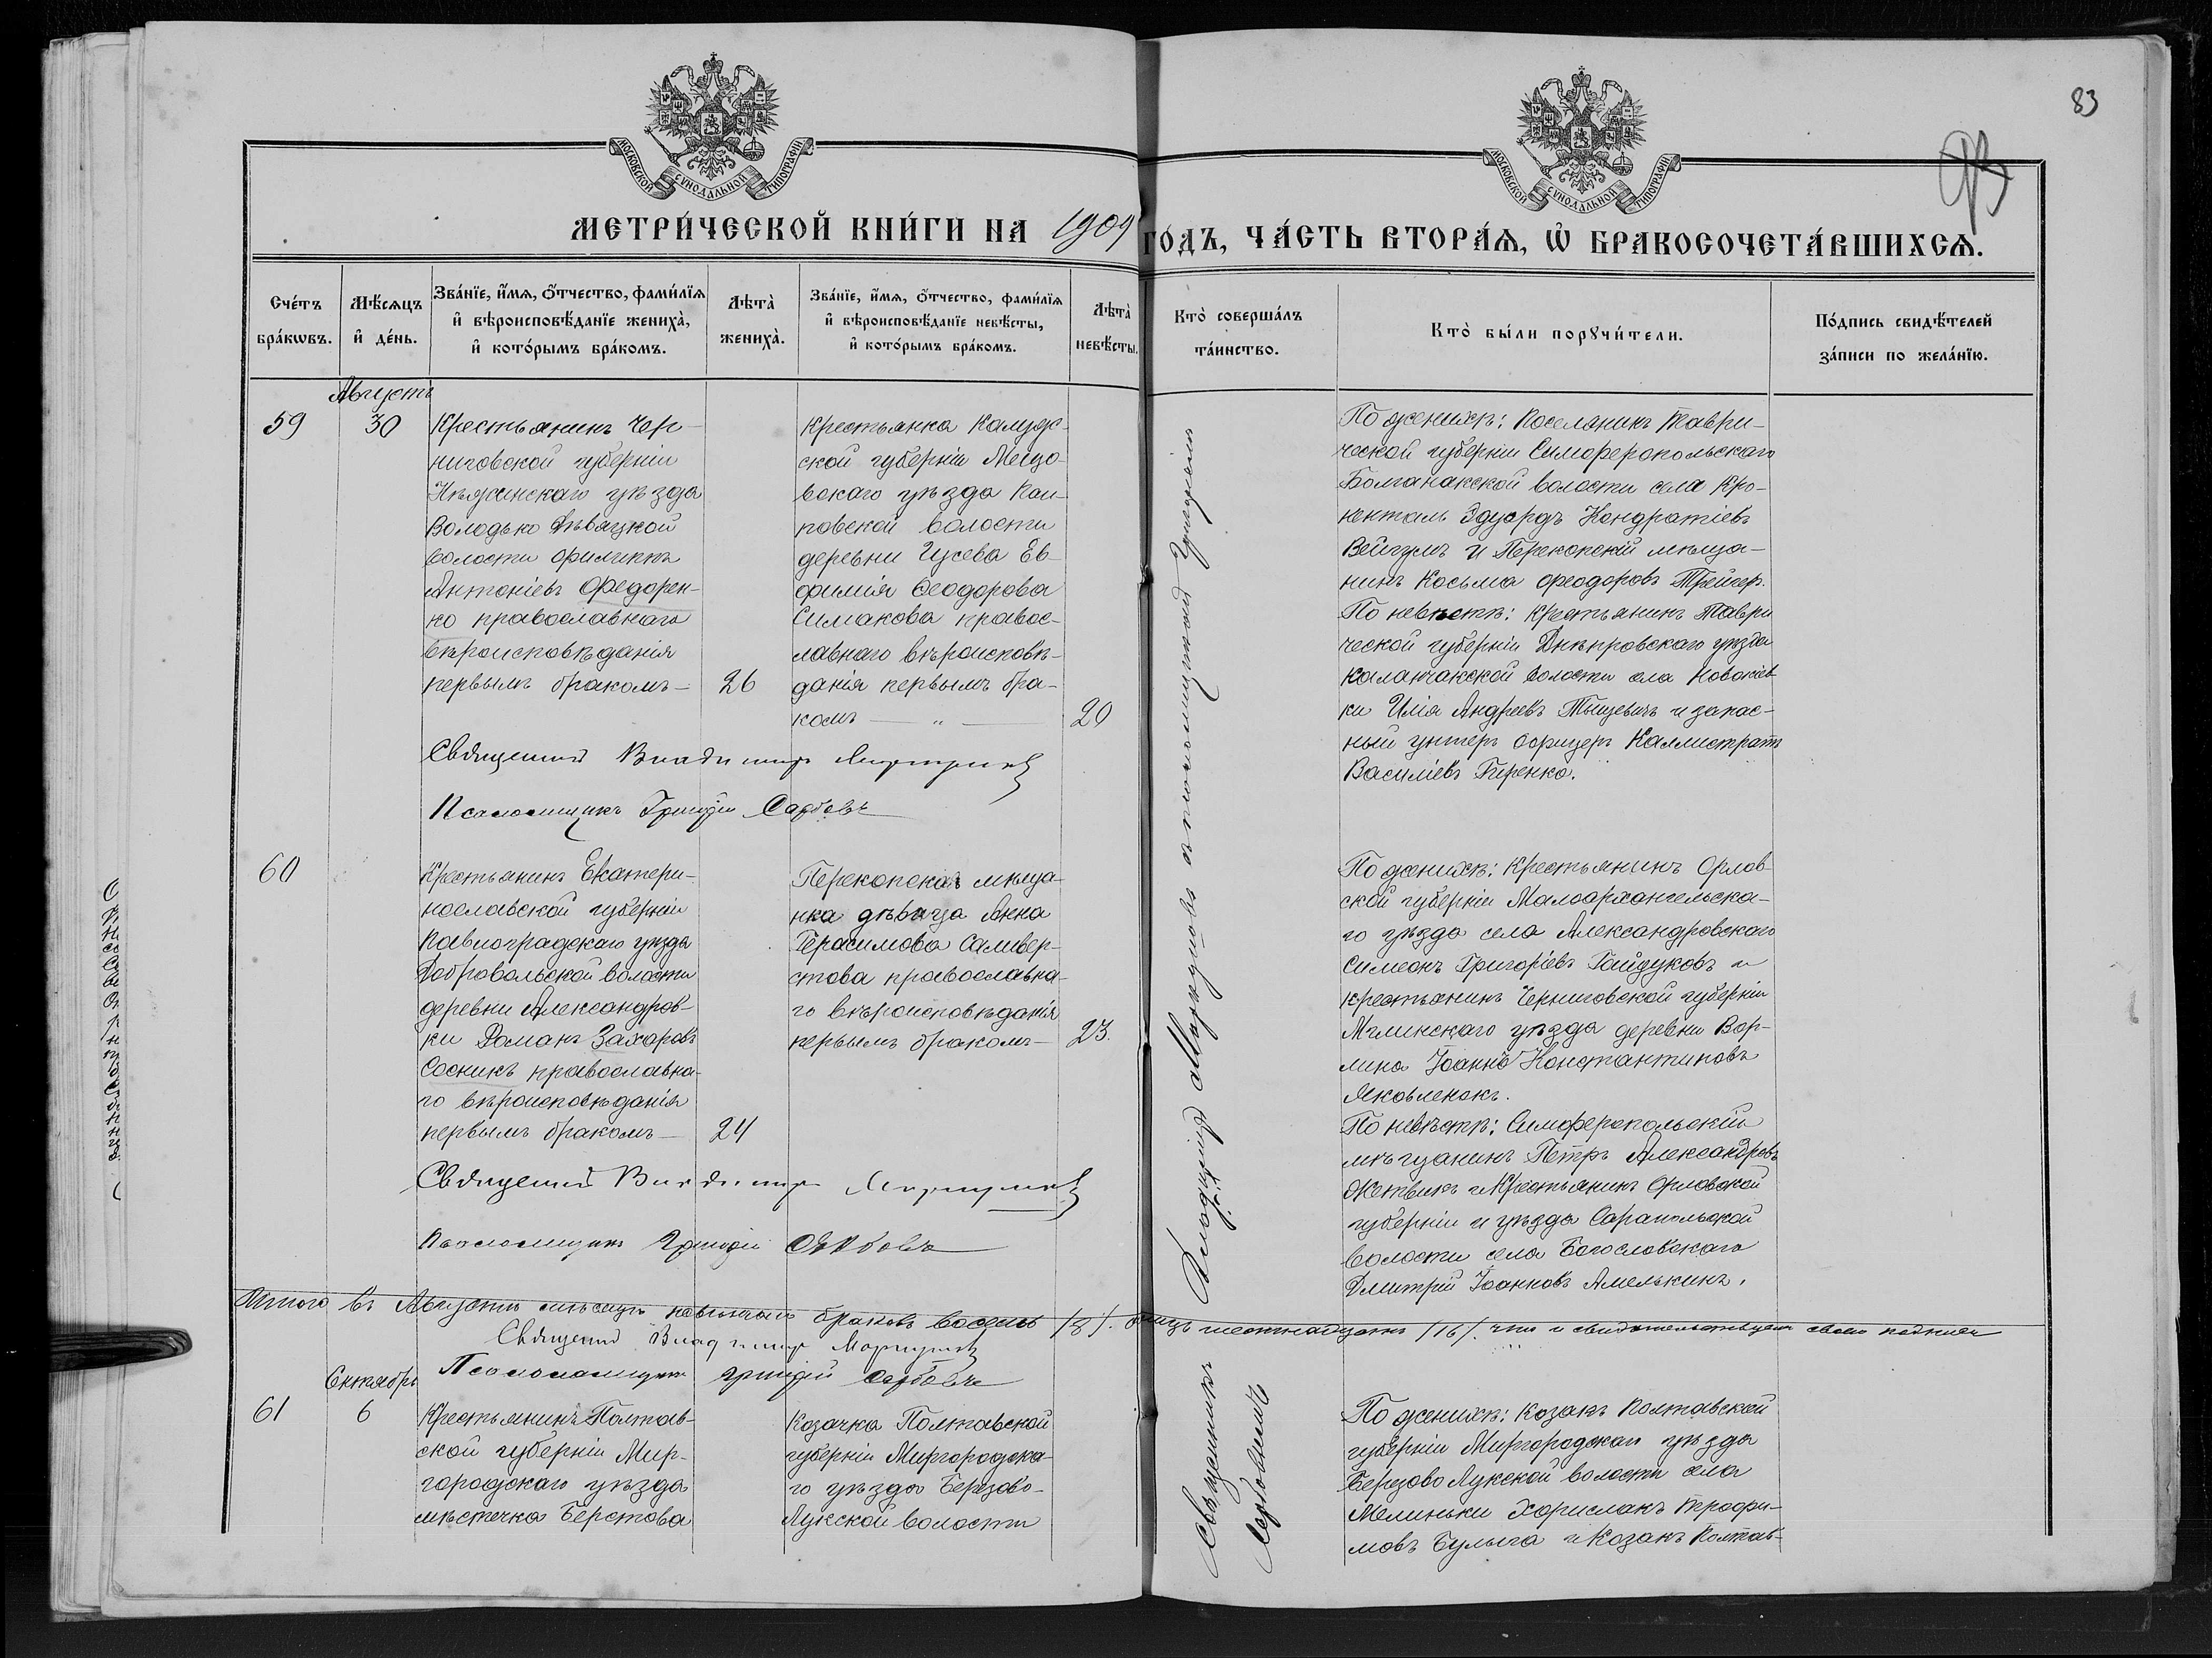 83
93
МОСКОВСКОЙ СѴНОДАЛЬНОЙ ТИПОГРАФІИ
МОСКОВСКОЙ СѴНОДАЛЬНОЙ ТИПОГРАФІИ
МЕТРИ́ЧЕСКОЙ КНИ́ГИ НА 1909 ГО́ДЪ, ЧА́СТЬ ВТОРА́Ѧ, Ѽ БРАКОСОЧЕТА́ВШИХСѦ.
Сче́тъ
бра́кѡвъ.
Мѣ́сяцъ
и҆ де́нь.
Зва́нїе, и҆́мѧ, ѻ҆́тчество, фами́лїѧ
и҆ вѣроисповѣ́данїе жениха̀,
и҆ кото́рымъ бра́комъ.
Лѣта̀
жениха̀.
Зва́нїе, и҆́мѧ, ѻ҆́тчество, фами́лїѧ
и҆ вѣроисповѣ́данїе невѣ́сты,
и҆ кото́рымъ бра́комъ.
Лѣта̀
невѣ́сты.
Кто̀ соверша́лъ
та́инство.
Кто̀ бы́ли порꙋчи́тели.
По́дпись свидѣ́телей
за́писи по жела́нїю.
Августъ
59
30
Крестьянинъ Чер-
ниговской губерніи
Нѣжинскаго уѣзда
Володько Дѣвицкой
волости Филиппъ
Антоніевъ Федорен-
ко православнаго
вѣроисповѣданія
первымъ бракомъ—
26
Крестьянка Калуж-
ской губерніи Мещо-
вскаго уѣзда
повской волости
деревни Гусева Ев-
фимія Ѳеодорова
Симакова правос-
лавнаго вѣроисповѣ-
данія первымъ бра-
комъ — " —
20
По женихѣ: Поселянинъ Таври-
ческой губерніи Симферопольскаго
Болганакской волости села Кро-
ненталь Эдуардъ Кондратіевъ
и Перекопскій мѣща-
нинъ Косьма Феодоровъ Трейгер.
По невѣстѣ: Крестьянинъ Таври
ческой губерніи Днѣпровскаго уѣзда
Каланчакской волости села Новокіев
ки Илія Андреевъ Тыщевичъ и запас-
ный унтеръ офицеръ Каллистратъ
Василіевъ Гиренко.
Священникъ Владимиръ Маркуновъ
Псаломщикъ Григорій Сербовъ
60
Крестьянинъ Екатери-
нославской губерніи
Павлоградскаго уѣзда
Добровольской волости
деревни Александров-
ки Романъ Захаровъ
Сосникъ православна-
го вѣроисповѣданія
первымъ бракомъ—
24
Перекопская мѣща-
нка дѣвица Анна
Герасимова Саливер-
стова православна-
го вѣроисповѣданія
первымъ бракомъ—
23.
По женихѣ: Крестьянинъ Орлов-
ской губерніи Малоархангельска-
го уѣзда села Александровскаго
Симеонъ Григоріевъ Гайдуковъ и
крестьянинъ Черниговской губерніи
Мглинскаго уѣзда деревни Вор-
мина Іоаннъ Константиновъ
Яковленокъ.
По невѣстѣ: Симферопольскій
мѣщанинъ Петръ Александровъ
Жетвинъ и Крестьянинъ Орловской
губерніи и уѣзда Сарапольской
волости села Богословскаго
Дмитрій Іоанновъ Амелькинъ.
Священникъ Владимиръ Маркуновъ
Псаломщикъ Григорій Сербовъ
Итого въ Августѣ мѣсяцѣ повѣнчано браковъ восемь /8/. лицъ шестнадцать /16/. что и свидѣтельствуемъ своею подписью
Священникъ Владимиръ Маркуновъ
Псаломщикъ Григорій Сербовъ
Священникъ Владиміръ Маркуновъ с псаломщикомъ Григоріемъ
Сербовымъ
61
6
Крестьянинъ Полтав-
ской губерніи Мир-
городскаго уѣзда
мѣстечка Берстова
Козачка Полтавской
губерніи Миргородска-
го уѣзда Березово-
Лукской волости
По женихѣ: Козакъ Полтавской
губерніи Миргородскаго уѣзда
Березово Лукской волости села
Мелиньки Трофи-
мовъ Булыга и Козакъ Полтав-